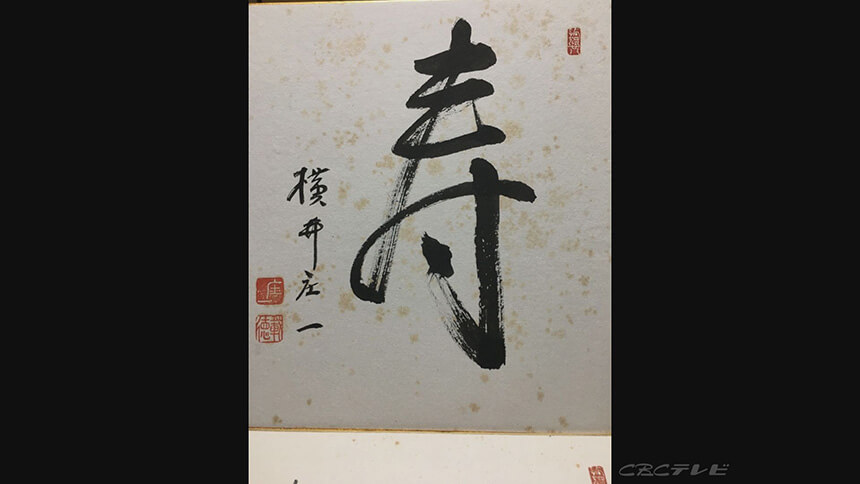 寿
横井庄一
CBCテレビ